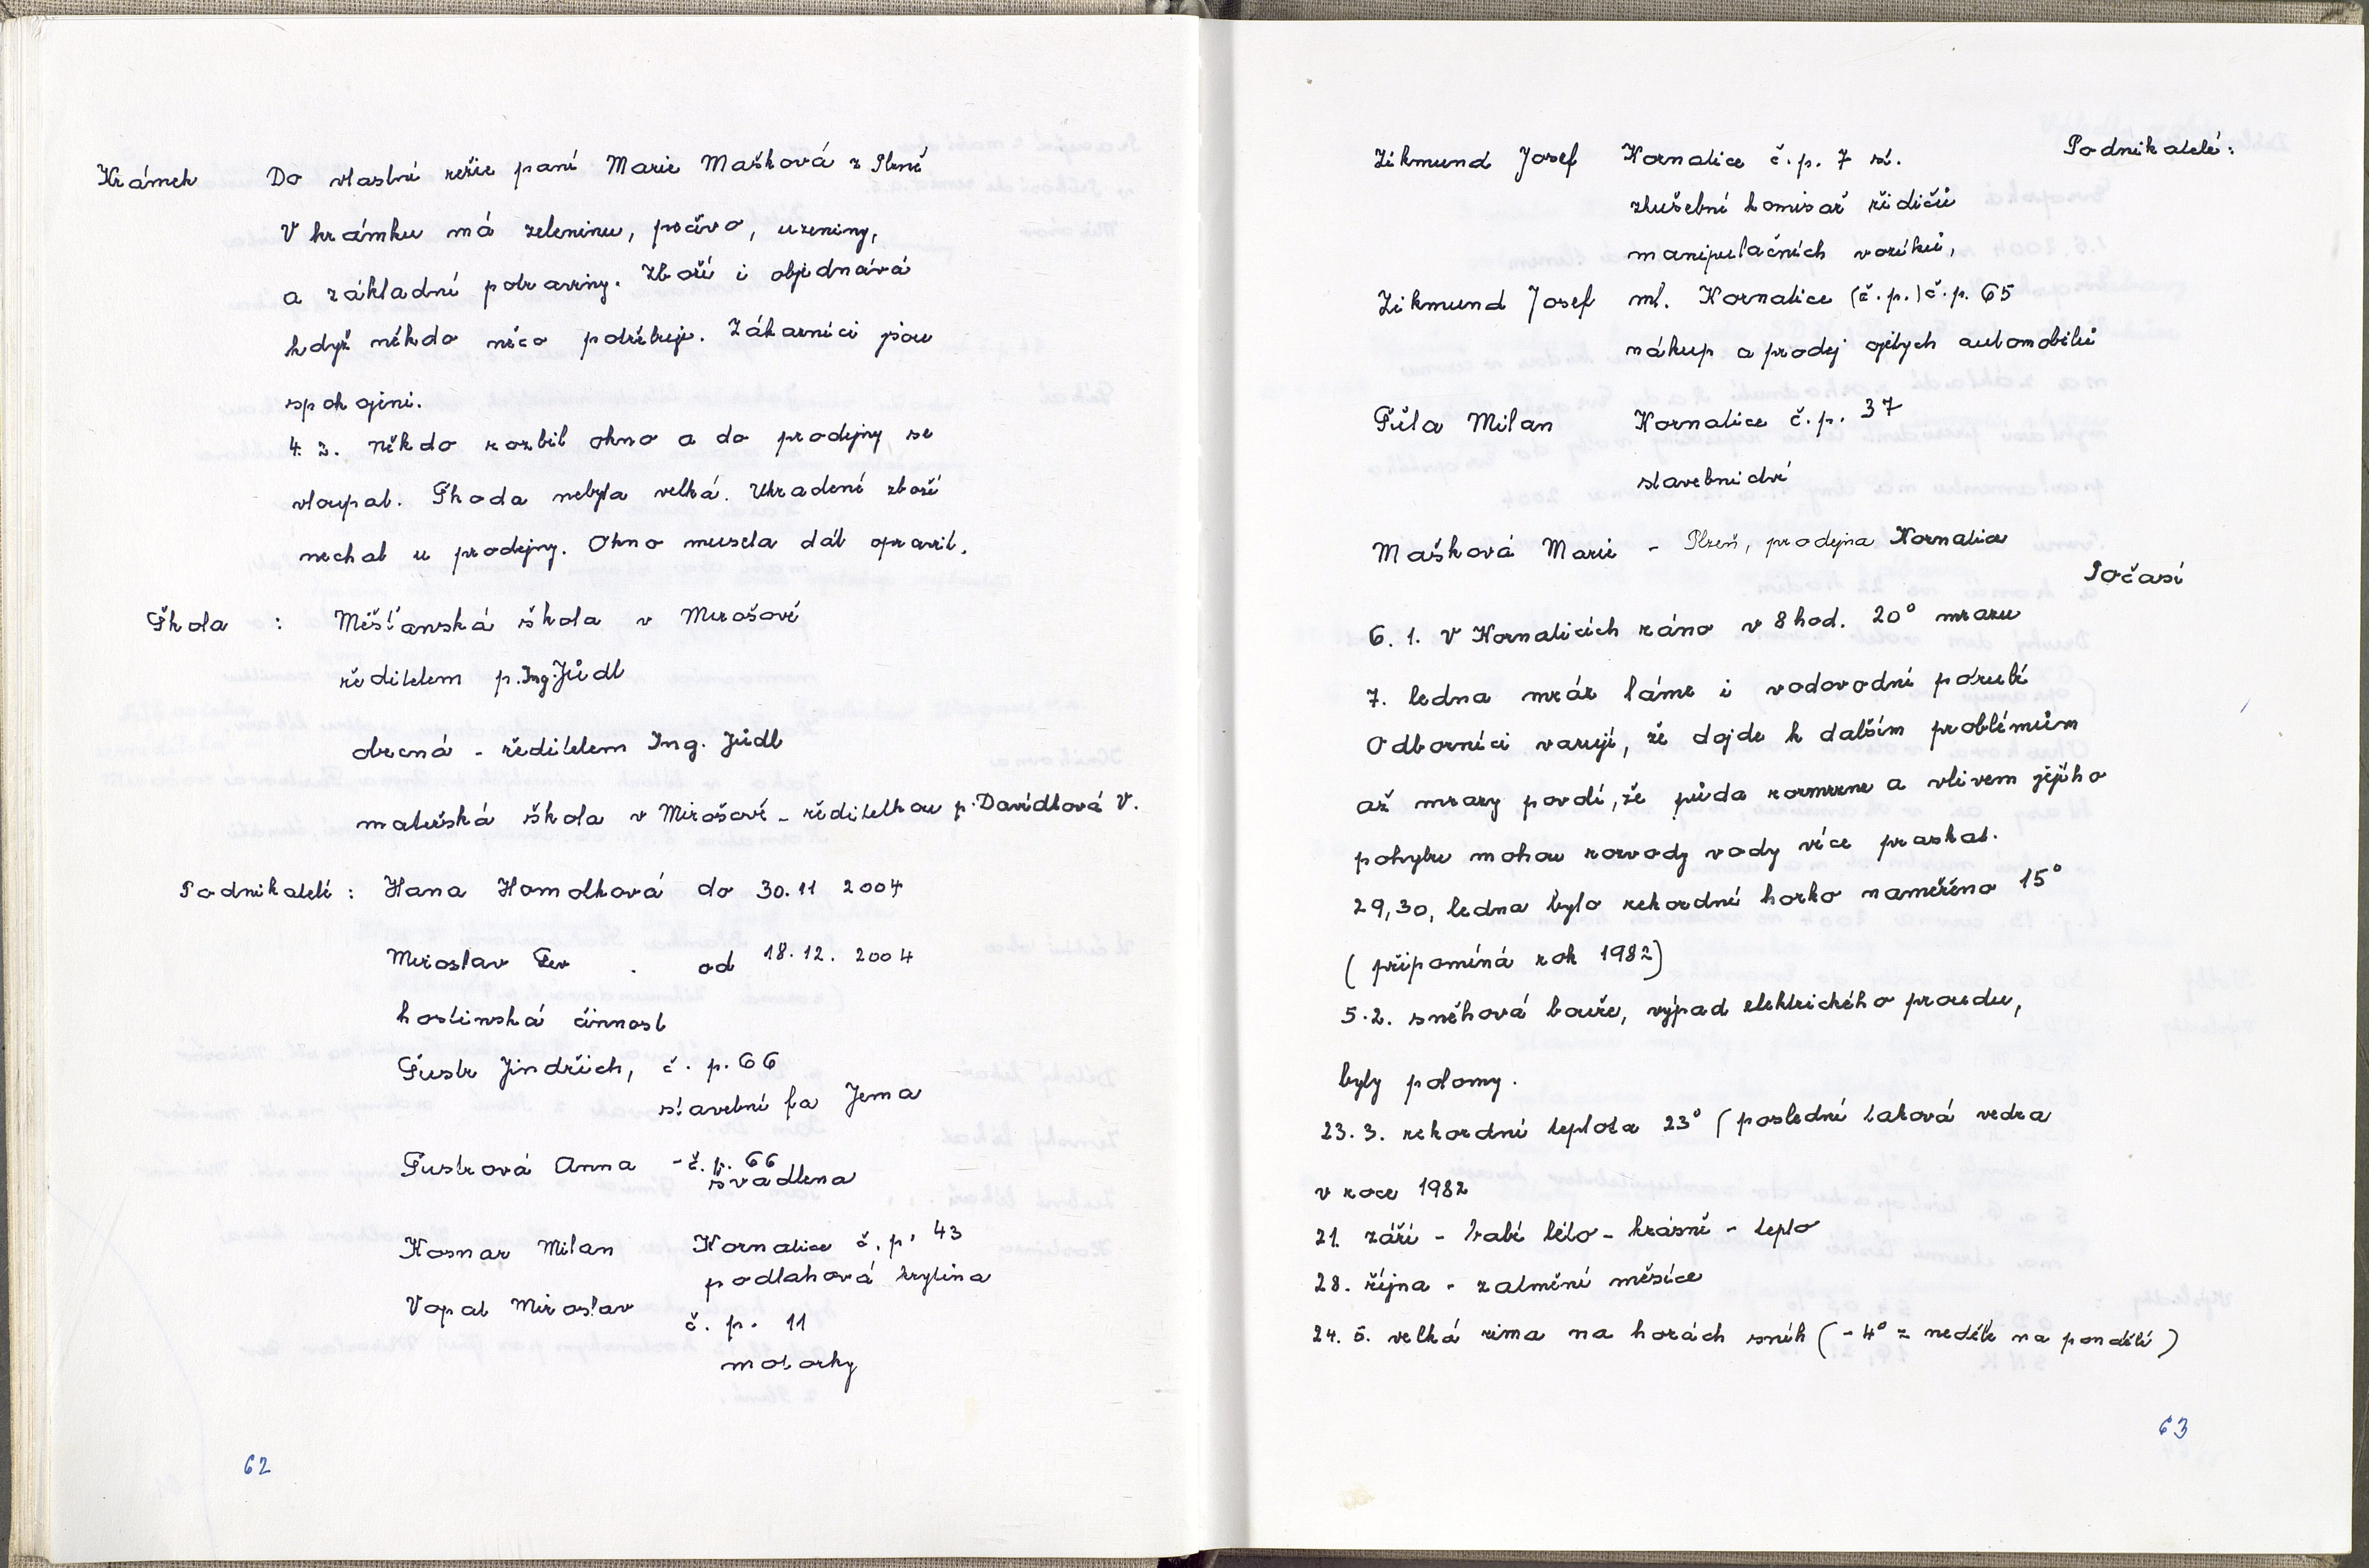 Krámek Do vlastní režie paní Marie Mašková z Plzně
V krámku má zeleninu, pečivo, uzeniny,
a základní potraviny. Zboží i objednává
když někdo něco potřebuje. Zákazníci jsou
spokojeni.
4. 2. někdo rozbil okno a do prodejny se
vloupal. Škoda nebyla velká. Ukradené zboží
nechal u prodejny. Okno musela dát opravit.
Škola : Měšťanská škola v Mirošově
ředitelem p. Ing. Jůdl
obecná - ředitelem Ing. Jůdl
mateřská škola v Mirošově - ředitelkou p. Davídková V.
Podnikatelé : Hana Homolková do 30.11 2004
Miroslav Per . od 18.12. 2004
hostinská činnost
Šustr Jindřich, č. p. 66
stavební fa Jema
Šustrová Anna - č. p. 66
švadlena
Kosnar Milan Kornatice č. p. 43
podlahová krytina
Vopat Miroslav č. p. 11
motorky
62
Podnikatelé :
Zikmund Josef Kornatice č. p. 7 st.
zkušební komisař řidičů
manipulačních vozíků,
Zikmund Josef ml. Kornatice (č. p.) č. p. 65
nákup a prodej ojetých automobilů
Šůla Milan Kornatice č. p. 37
stavebnidví
Mašková Marie - Plzeň, prodejna Kornatice
Počasí
6. 1. V Kornaticích ráno v 8 hod. 20° mrazu
7. ledna mráz láme i vodovodní potrubí
Odborníci varují, že dojde k dalším problémům
až mrazy povolí, že půda rozmrzne a vlivem jejího
pohybu mohou rozvody vody více praskat.
29, 30, ledna bylo rekordní horko naměřeno 15°
( připomíná rok 1982)
5. 2. sněhová bouře, výpad elektrického proudu,
byly polomy.
23. 3. rekordní teplota 23° ( poslední taková vedra
v roce 1982
21. září - babí léto - krásně - teplo
28. října - zatmění měsíce
24. 5. velká zima na horách sníh ( - 4° z neděle na pondělí )
63